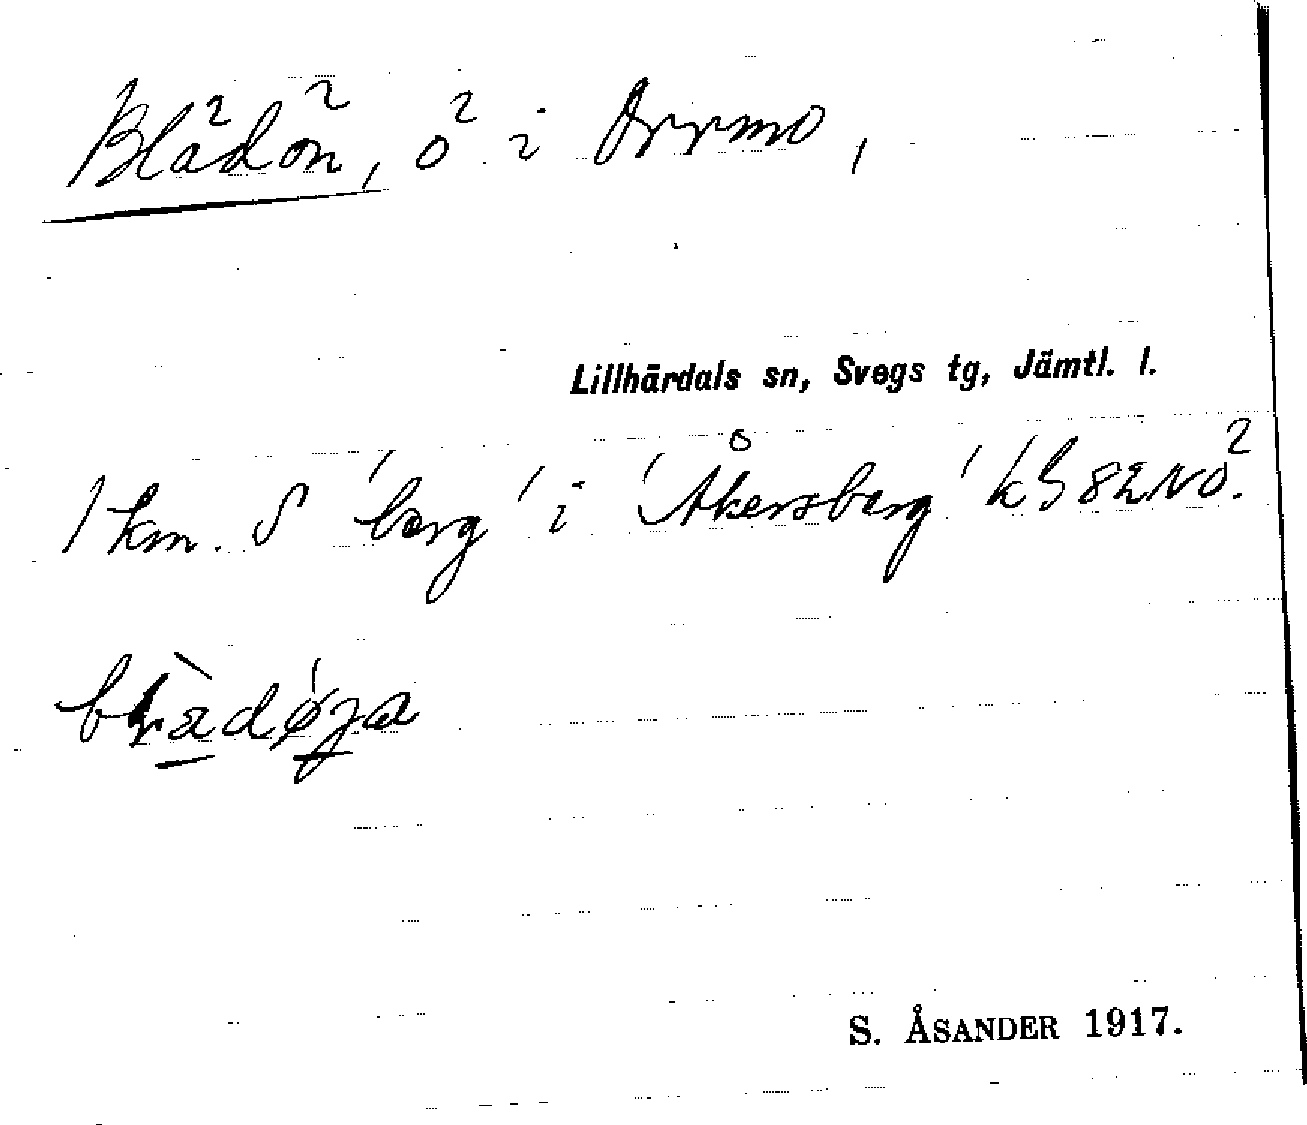 Blädön, ö i Orrmo,
Lillhärdals sn, Svegs tg, Jämtl. l.
1 km. S 'berg' i 'Åkersberg' kB 82NÖ.
S. ÅSANDER 1917.